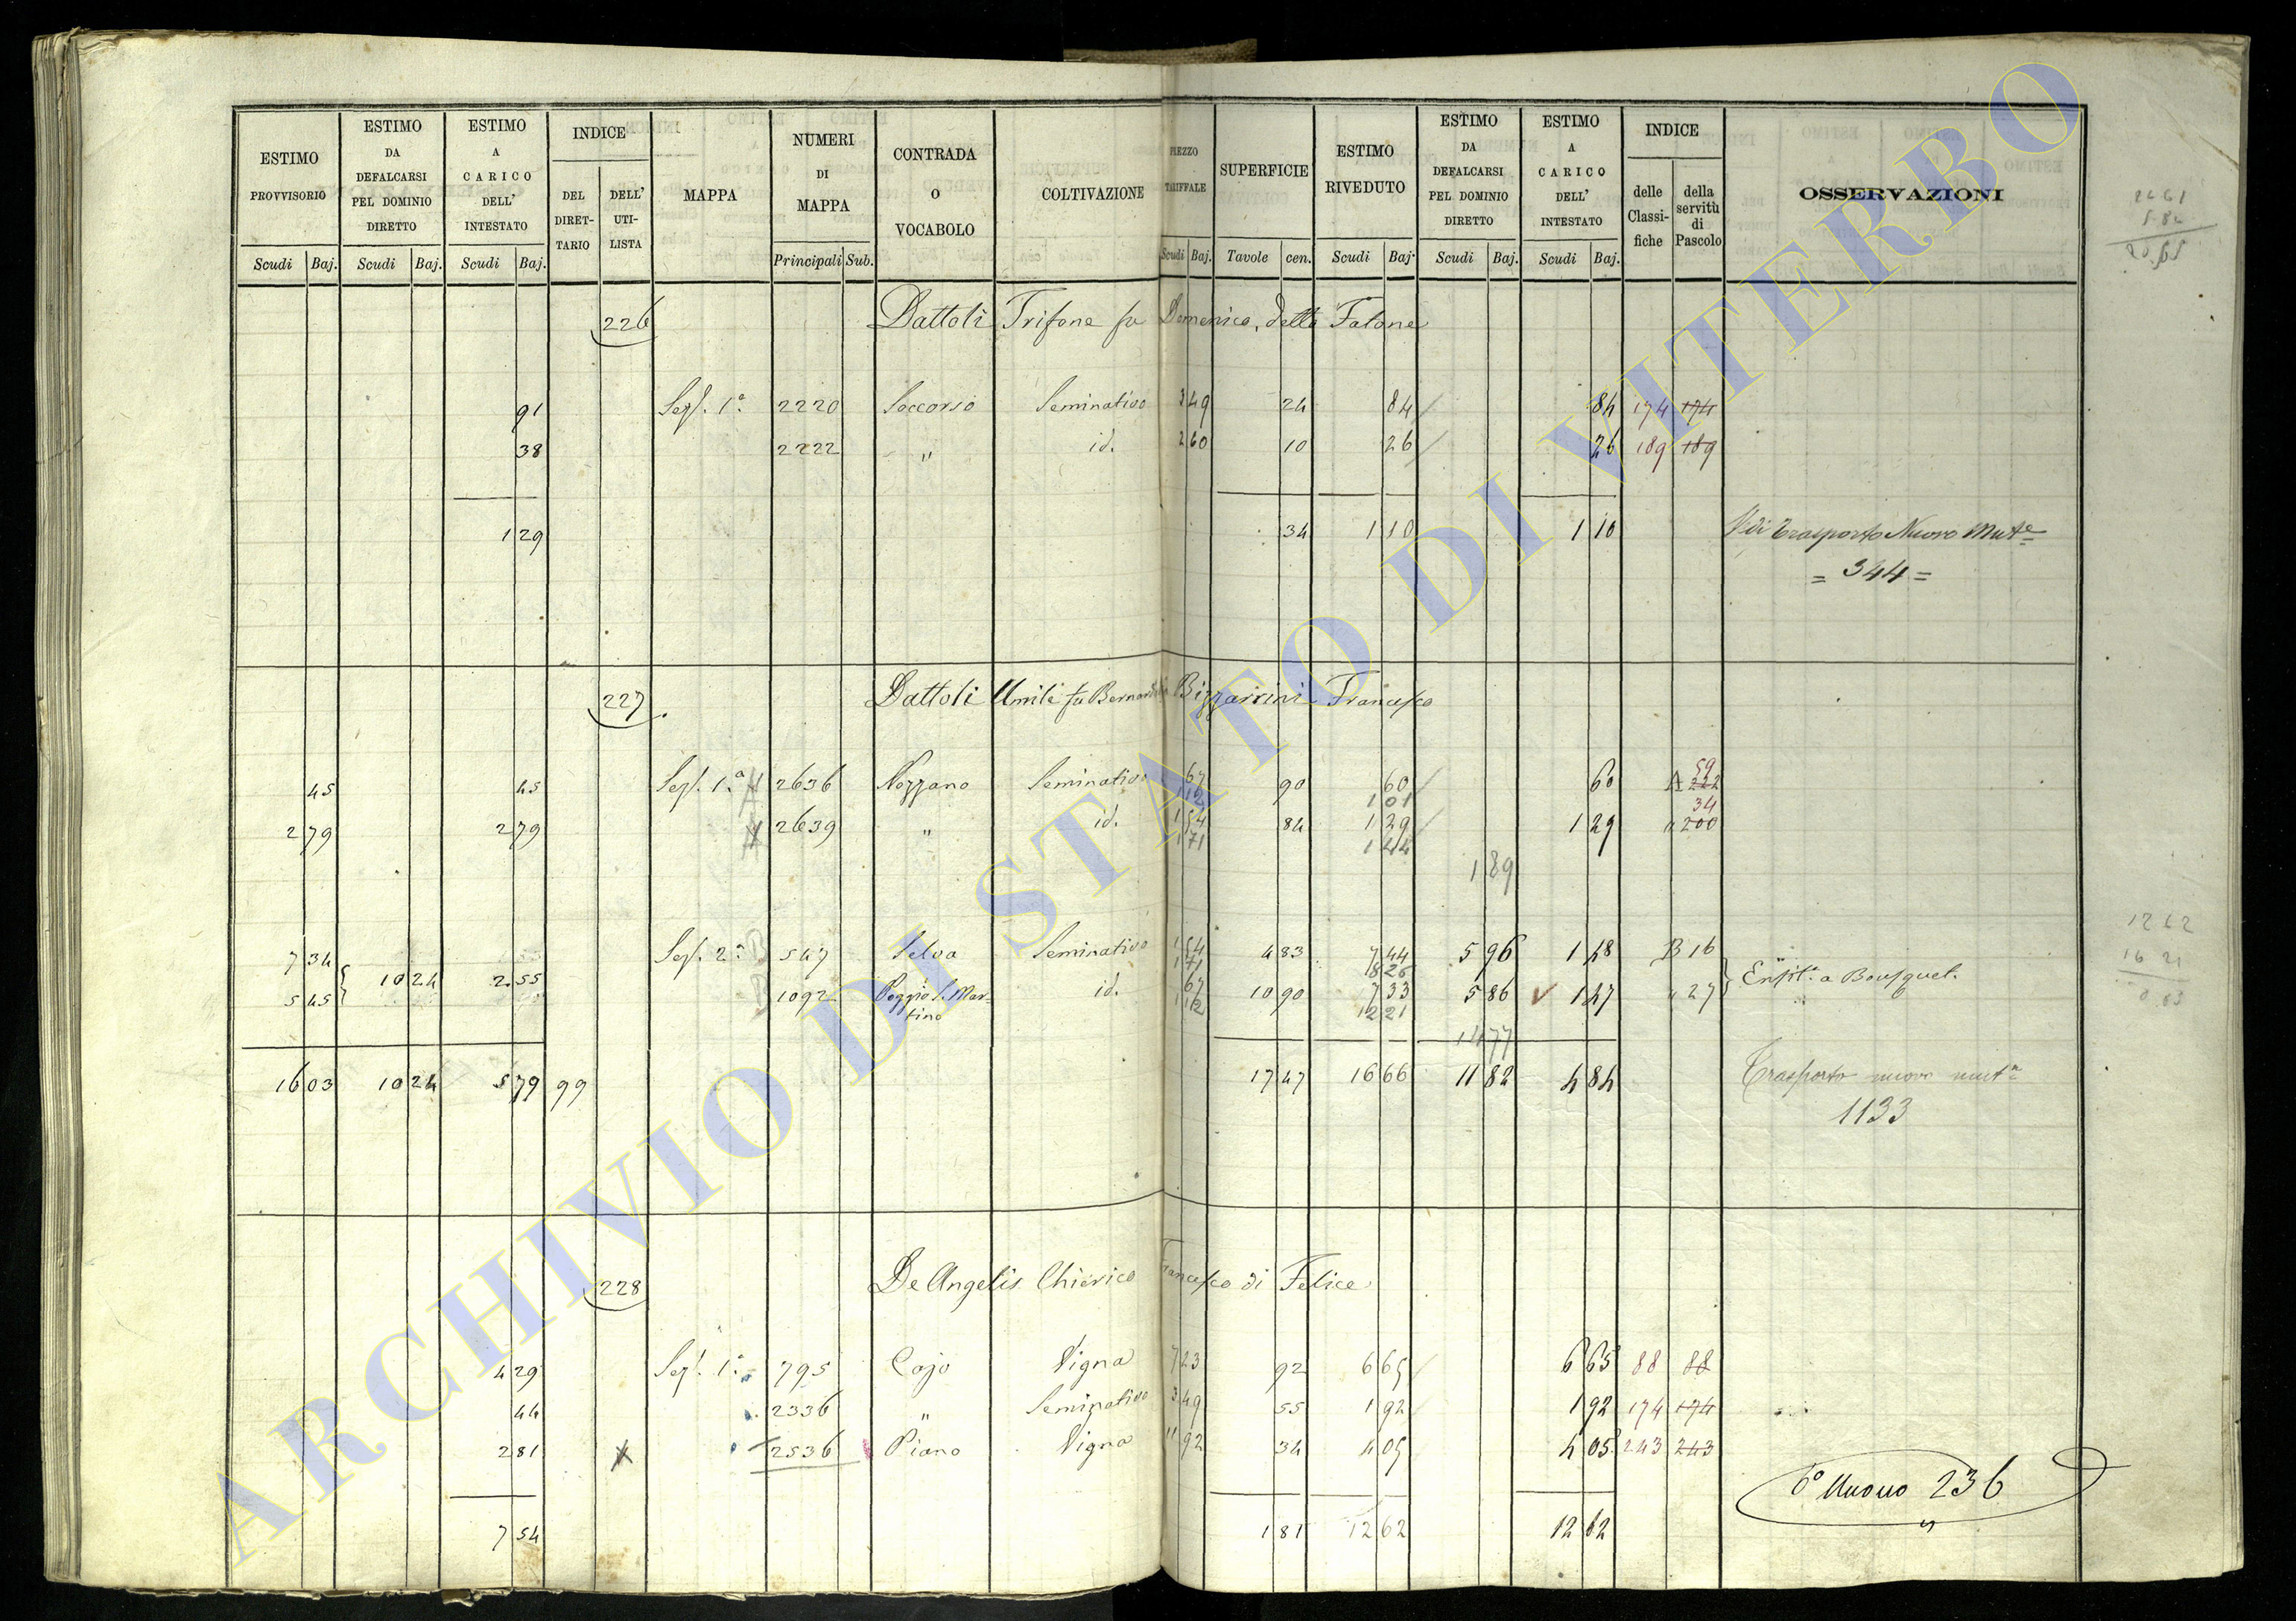 ESTIMO PROVVISORIO | ESTIMO DA DEFALCARSI PEL DOMINIO DIRETTO | ESTIMO A CARICO DELL' INTESTATO | INDICE | MAPPA | NUMERI DI MAPPA | CONTRADA O VOCABOLO | COLTIVAZIONE | PREZZO TARIFFALE | SUPERFICIE | ESTIMO RIVEDUTO | ESTIMO DA DEFALCARSI PEL DOMINIO DIRETTO | ESTIMO A CARICO DELL' INTESTATO | INDICE | OSSERVAZIONI
DEL DIRET-TARIO | DELL' UTI-LISTA | delle Classi-fiche | della servitù di Pascolo
Scudi | Baj. | Scudi | Baj. | Scudi | Baj. | Principali | Sub. | Scudi | Baj. | Tavole | cen. | Scudi | Baj. | Scudi | Baj. | Scudi | Baj.
226 Dattoli Trifone fu Domenico, detto Falone
91 Sez. 1a. 2220 Soccorso Seminativo 3 49 24 84 84 174 174
38 2222 " id. 2 60 10 26 26 189 189
1 29 34 1 10 1 10 Vedi Trasporto Nuovo Mute
= 344 =
227 Dattoli Umile fu Bernardino Bizzarrini Francesco
59
45 45 Sez. 1.a 2636 Nozzano Seminativo 67 90 60 60 A 222
1 12 1 01 34
2 79 2 79 2639 " id. 1 54 84 1 29 1 29 " 200
1 71 1 44
1 89
7 34 Sez. 2a. 547 Selva Seminativo 1 54 4 83 7 44 5 96 1 48 B 16
10 24 2 55 1 71 8 26 Enfit.a a Bousquet.
5 45 1092 Poggio S. Mar- id. 67 10 90 7 33 5 86 1 47 " 27
tino 1 12 12 21
14 77
16 03 10 24 5 79 99 17 47 16 66 11 82 4 84 Trasporto nuovo muta
1133
228 De Angelis Chierico Francesco di Felice
4 29 Sez. 1a. 795 Cojo Vigna 7 23 92 6 65 6 65 88 88
44 2336 " Seminativo 3 49 55 1 92 1 92 174 174
2 81 2536 Piano Vigna 11 92 34 4 05 4 05 243 243
6° Nuovo 236
7 54 1 81 12 62 12 62
12 62
16 21
ARCHIVIO DI STATO DI VITERBO